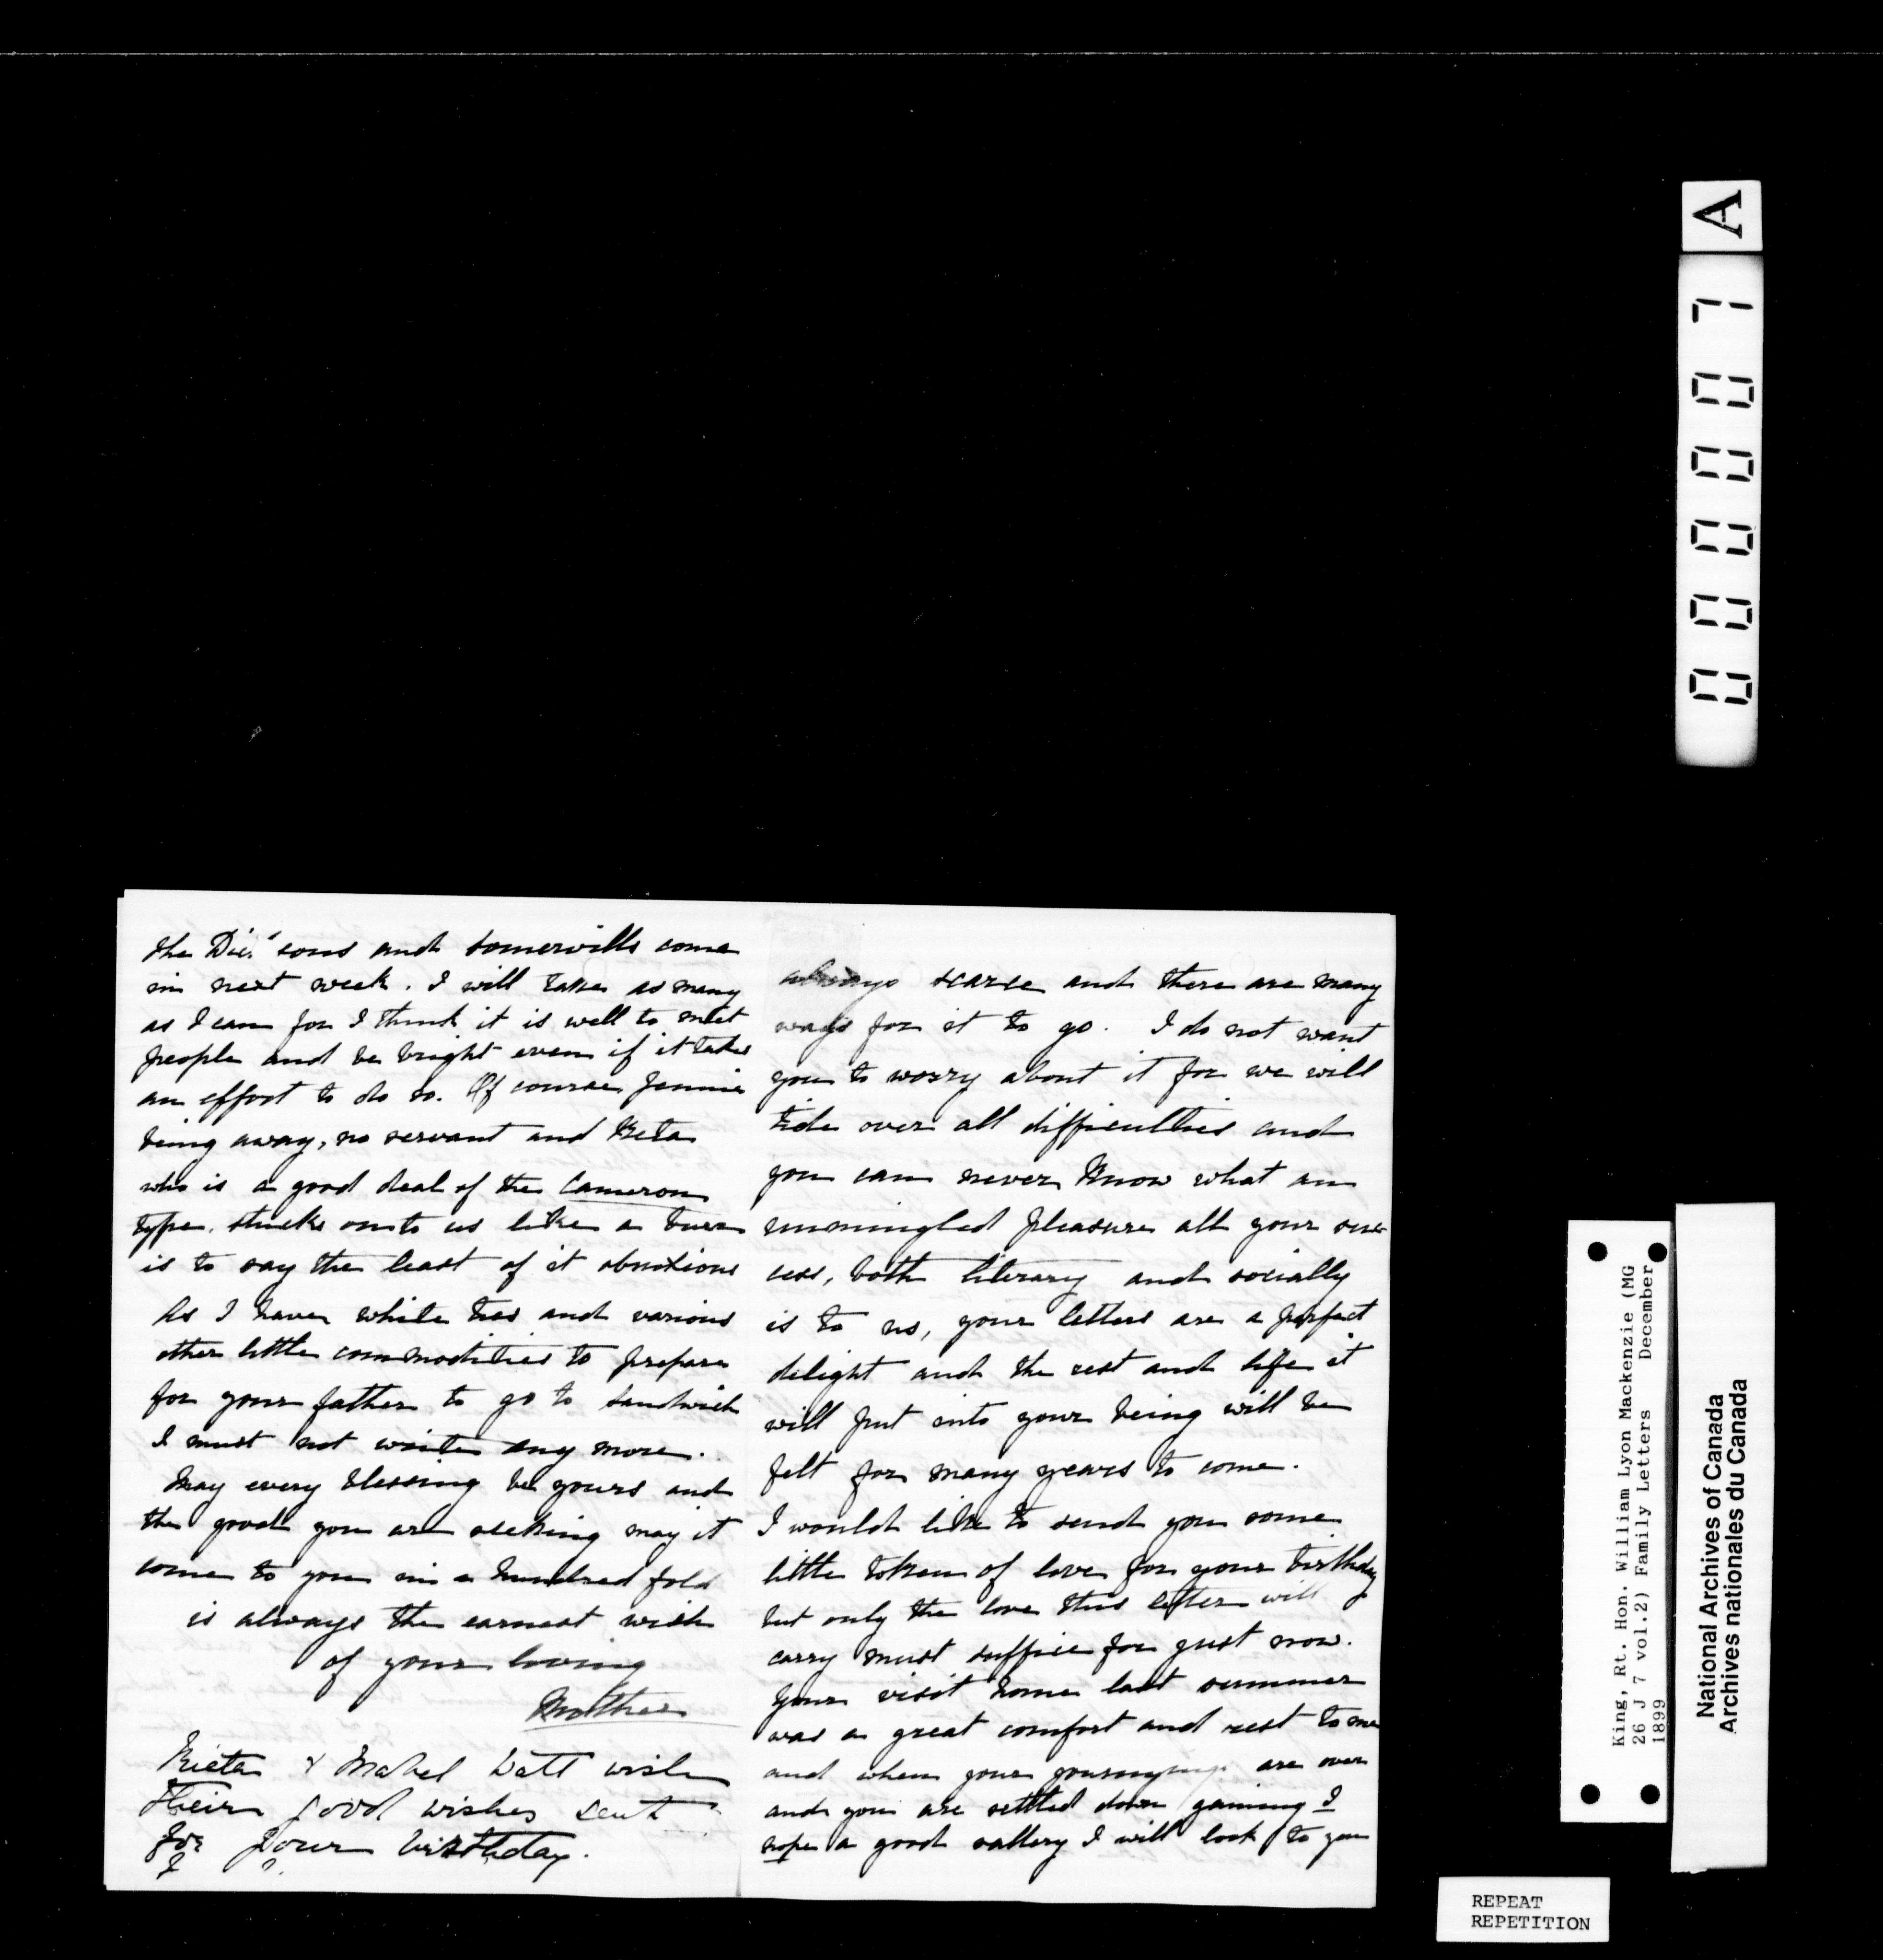 the Dicksons and Somervills come
in next week. I will take as many
as I can for I think it is well to meet
people and be bright even if it takes
an effort to do so. Of course Jennie
being away, no servant and Rieta
who is a good deal of the Cameron
type, sticks on to us like a burr
is to say the least of it obnoxious
As I have white ties and various
other little commodities to prepare
for your father to go to Sandwich
I must not write any more.
May every blessing be yours and
the good you are seeking may it
come to you in a hundred fold
is always the earnest wish
of your loving
Mother
Rieta & Mabel Watt wish
their good wishes sent
for your birthday.
always scarce and there are many
ways for it to go. I do not want
you to worry about it for we will
tide over all difficulties and
you can never know what an
unmingled pleasure all your suc
cess, both literary and socially
is to us, your letters are a perfect
delight and the rest and life it
will put into your being will be
felt for many years to come.
I would like to send you some
little token of love for your birthday
but only the love this letter will
carry must suffice for just now.
Your visit home last summer
was a great comfort and rest to me
and when your are over
and you are settled down gaining I
hope a good sallery I will look to you
A
0000071
King, Rt. Hon. William Lyon Mackenzie (MG
26 J 7 vol.2) Family Letters December
1899
National Archives of Canada
Archives nationales du Canada
REPEAT
REPETITION